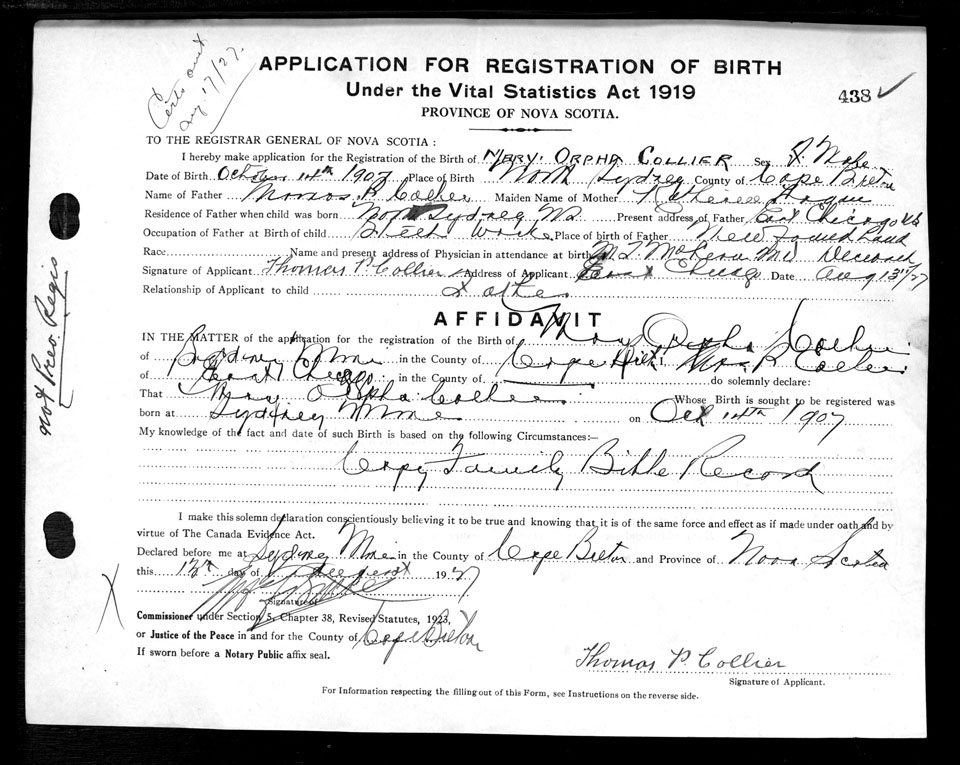 Certs out
Aug. 17/27.
APPLICATION FOR REGISTRATION OF BIRTH
Under the Vital Statistics Act 1919
438 ✓
PROVINCE OF NOVA SCOTIA.
TO THE REGISTRAR GENERAL OF NOVA SCOTIA :
I hereby make application for the Registration of the Birth of MARY. ORPHA COLLIER Sex
Date of Birth October 14th 1907 Place of Birth North Sydney County of Cape Breton
Name of Father P. Collier Maiden Name of Mother
Residence of Father when child was born North Sydney Present address of Father East Chicago
Occupation of Father at Birth of child Steel Work Place of birth of Father New found land
Race Name and present address of Physician in attendance at birth MD Deceased
Signature of Applicant Thomas P. Collier Address of Applicant East Chicago Date Aug 13/27
Relationship of Applicant to child Father
AFFIDAVIT
IN THE MATTER of the application for the registration of the Birth of Mary Orpha Collier
of Sydney Mines in the County of Cape
of East Chicago in the County of do solemnly declare:
That Mary Orpha Collier Whose Birth is sought to be registered was
born at Sydney Mines on Oct 14th 1907
My knowledge of the fact and date of such Birth is based on the following Circumstances:—
Copy Family Bible Record
I make this solemn declaration conscientiously believing it to be true and knowing that it is of the same force and effect as if made under oath and by
virtue of The Canada Evidence Act.
Declared before me at Sydney Mines in the County of Cape Breton and Province of Nova Scotia
this 13th day of August 1927
Signature of
Commissioner under Section 5, Chapter 38, Revised Statutes, 1923,
or Justice of the Peace in and for the County of Cape Breton
If sworn before a Notary Public affix seal.
Thomas P. Collier
Signature of Applicant.
For Information respecting the filling out of this Form, see Instructions on the reverse side.
not Prev. Regis
X